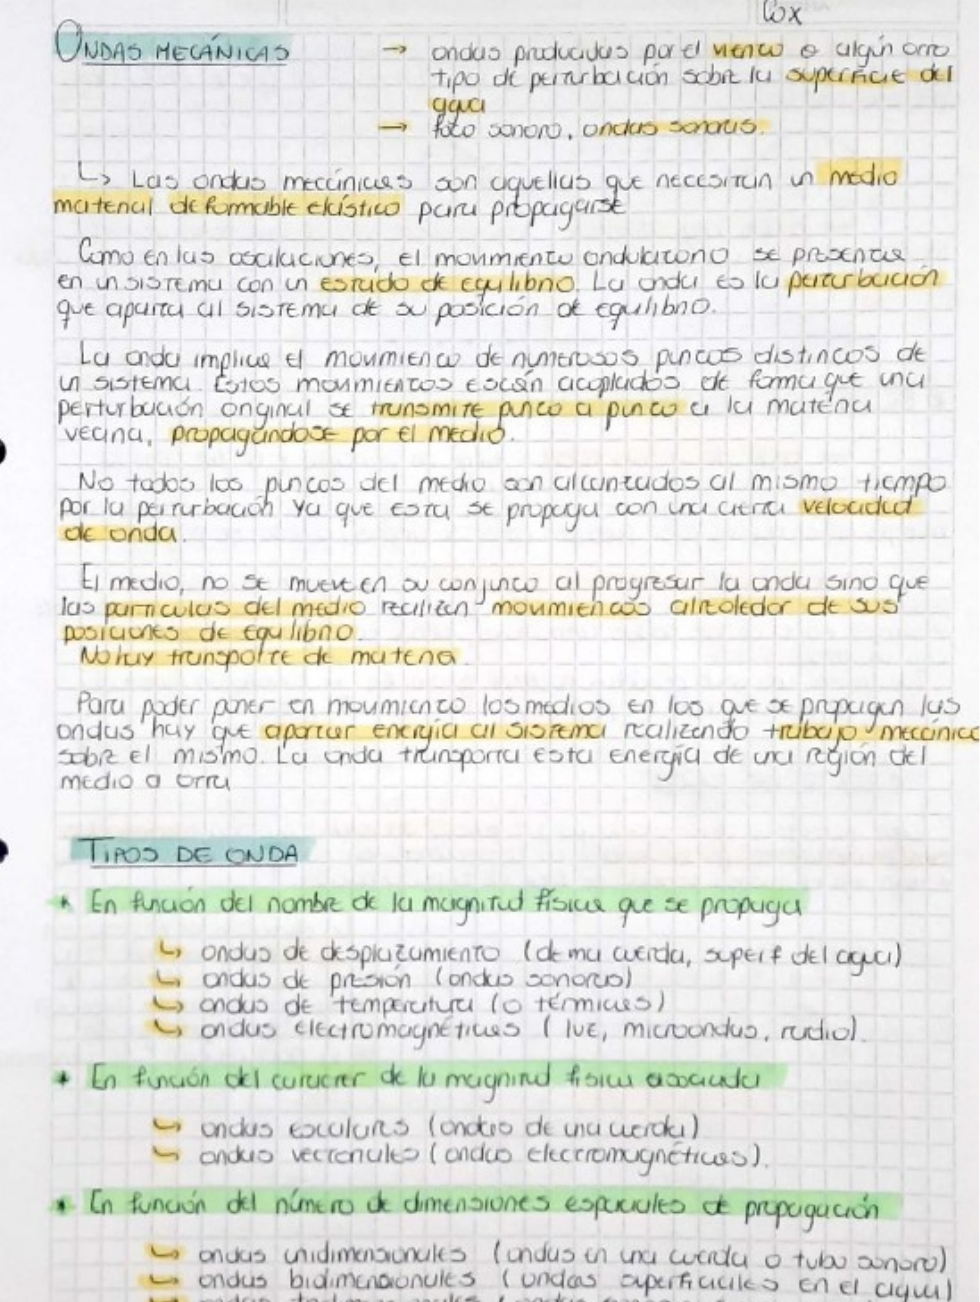 Cox
ONDAS MECÁNICAS → ondas producidas por el viento o algún otro
tipo de perturbación sobre la superficie del
agua
→ foco sonoro, ondas sonoras.
↳ Las ondas mecánicas son aquellas que necesitan un medio
material deformable elástico para propagarse
Como en las oscilaciones, el movimiento ondulatorio se presenta
en un sistema con un estado de equilibrio. La onda es la perturbación
que aparta al sistema de su posición de equilibrio.
La onda implica el movimiento de numerosos puntos distintos de
un sistema. Estos movimientos están acoplados de forma que una
perturbación original se transmite punto a punto a la materia
vecina, propagándose por el medio.
No todos los puntos del medio son alcanzados al mismo tiempo
por la perturbación ya que esta se propaga con una cierta velocidad
de onda.
El medio, no se mueve en su conjunto al progresar la onda sino que
las partículas del medio realizan movimientos alrededor de sus
posiciones de equilibrio.
No hay transporte de materia.
Para poder poner en movimiento los medios en los que se propagan las
ondas hay que aportar energía al sistema realizando trabajo mecánico
sobre el mismo. La onda transporta esta energía de una región del
medio a otra
TIPOS DE ONDA
* En función del nombre de la magnitud física que se propaga
↳ ondas de desplazamiento (de una cuerda, superf del agua)
↳ ondas de presión (ondas sonoras)
↳ ondas de temperatura (o térmicas)
↳ ondas electromagnéticas (luz, microondas, radio).
* En función del caracter de la magnitud física asociada
↳ ondas escalares (ondas de una cuerda)
↳ ondas vectoriales (ondas electromagnéticas).
* En función del número de dimensiones espaciales de propagación
↳ ondas unidimensionales (ondas en una cuerda o tubo sonoro)
↳ ondas bidimensionales (ondas superficiales en el agua)